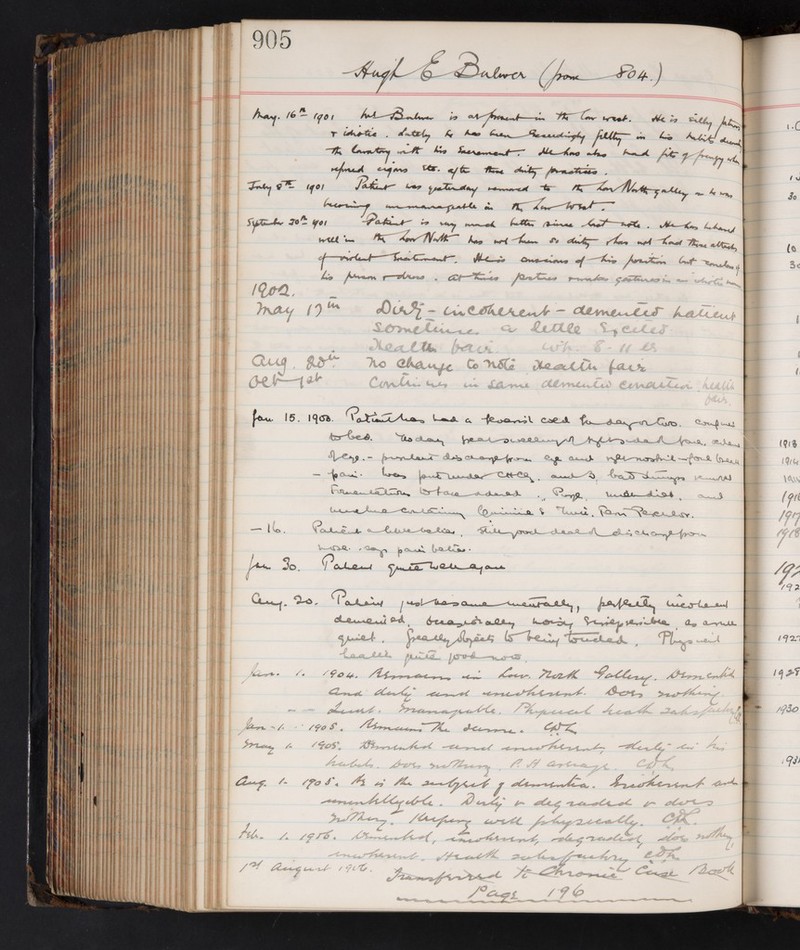 905
Hugh E Bulwer (from 804.)
May. 16th 1901 Mr Bulwer is at present in the low west. He is silly,
& idiotic. Lately he has been exceedingly filthy in his habits
the lavatory with his Excrement. He has also had fits of frenzy when
refused cigars etc. after these dirty practices.
July 8th 1901 Patient was yesterday removed to the Low North gallery as he was
becoming unmanageable in the Low West.
September 30th 1901 Patient is very much better since last note. He has behaved
well in the Low North has not been so dirty & has not had those attacks
of violent Excitement. He is conscious of his position but careless of
his person & dress. At times postures & makes gestures in an idiotic
1902.
May 17th Dirty - incoherent - demented patient
sometimes a little Excited
Health fair. Wt. 8-11
Aug. 20th No change to note Health fair
Oct 1st Continues in same demented condition, health
fair.
Jan 15. 1903. Patient has had a feverish cold for day or two.
to bed. Today great swelling of right side of face,
of eye, - purulent discharge from eye and right nostril - foul
- pain. Was put under CHCl3, and 3 bad stumps removed
Fomentations to face ordered. Purge, milk diet, and
containing Quinine &
- 16. Patient a little better, still good deal of discharge from
nose. says pain better.
Jan 30. Patient quite well again
Aug. 20. Patient just the same mentally, perfectly incoherent
demented, occasionally noisy & irrepressible, as a rule
quiet. Greatly objects to being touched. Physical
health quite good now.
Jan. 1. 1904. Remains in Low. North Gallery. Demented
and dirty and incoherent. Does nothing.
- - Quiet. Manageable. Physical health satisfactory
Jan - 1. 1905. Remains the same.
May 1. 1905. Demented and incoherent, dirty in his
habits. Does nothing. P.H average.
Aug. 1. 1905. He is the subject of dementia. Incoherent and
unintelligible. Dirty & degraded & does
nothing. Keeping well physically.
Feb. 1. 1906. Demented, incoherent, degraded, does nothing
incoherent. Health satisfactory
1st August 1906. Transferred to Chronic Case Book
Page 196